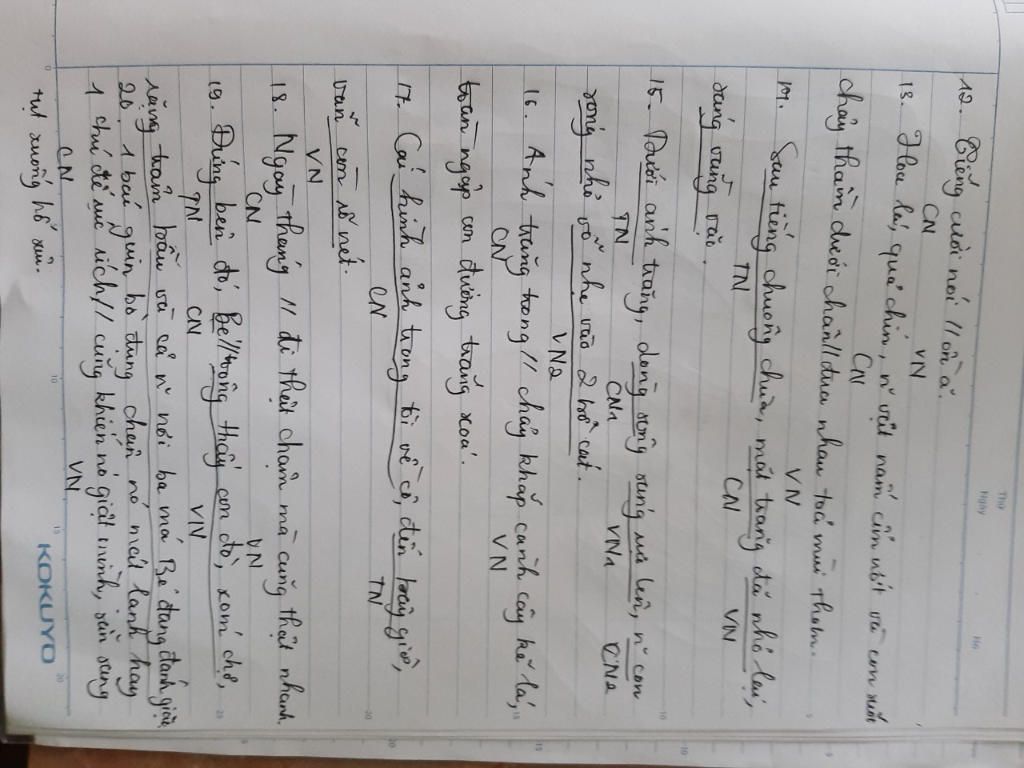 Thứ
Ngày
No.
12. Tiếng cười nói // ồn ã.
CN VN
13. Hoa lá, quả chín, n~ vạt nấm ẩm ướt và con suối
CN
chảy thầm dưới chân // đua nhau toả mùi thơm.
VN
14. Sau tiếng chuông chùa, mặt trăng đã nhỏ lại,
TN CN VN
sáng vằng vặc.
15. Dưới ánh trăng, dòng sông sáng rực lên, n~ con
TN CN1 VN1 CN2
sóng nhỏ vỗ nhẹ vào 2 bờ cát.
VN2
16. Ánh trăng trong // chảy khắp cành cây kẽ lá,
CN VN
tràn ngập con đường trắng xoá.
17. Cái hình ảnh trong tôi về cô, đến bây giờ,
CN TN
vẫn còn rõ nét.
VN
18. Ngày tháng // đi thật chậm mà cũng thật nhanh.
CN VN
19. Đứng bên đó, Bé // trông thấy con đò, xóm chợ,
TN CN VN
rặng trâm bầu và cả n~ nơi ba má Bé đang đánh giặc
20. 1 bác giun bò đụng chân nó mát lạnh hay
1 chú dế rúc rích // cũng khiến nó giật mình, sẵn sàng
CN VN
tụt xuống hố sâu.
KOKUYO